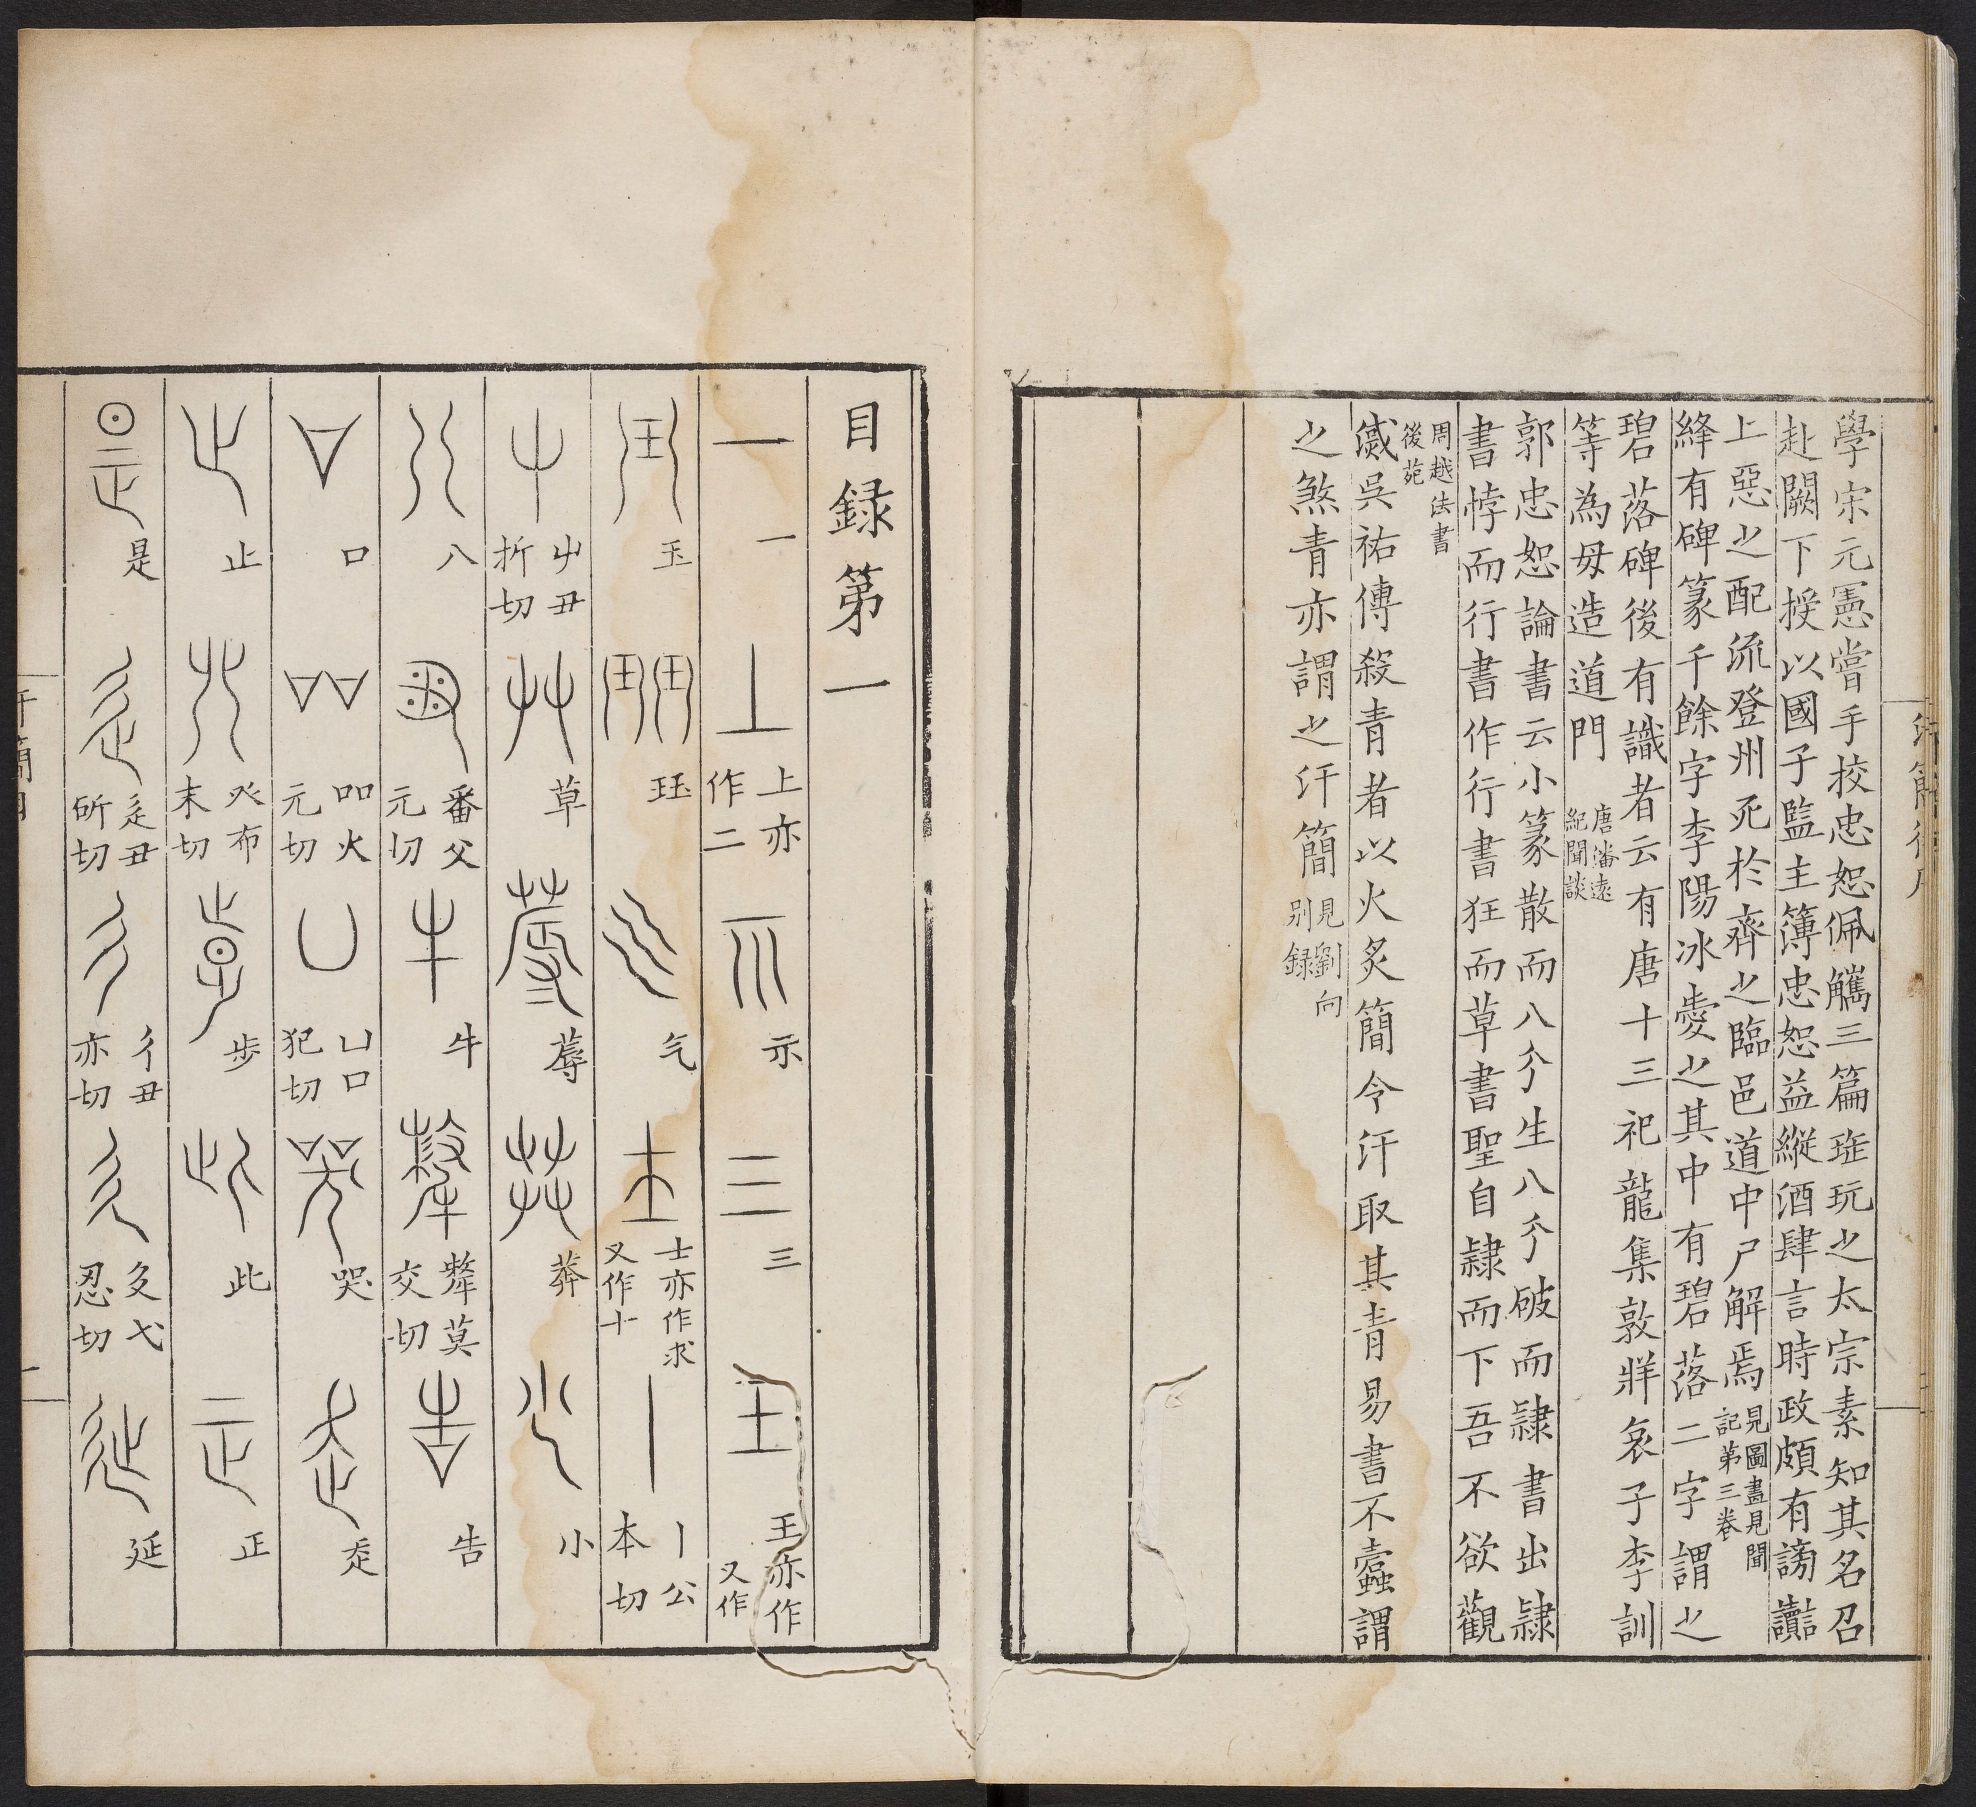 學宋元憲嘗手校忠恕佩觿三篇寶玩之太宗素知其名召
赴闕下授以國子監主簿忠恕益縱酒肆言時政頗有謗讟
上惡之配流登州死於齊之臨邑道中尸解焉見圖畫見聞記第三卷
絳有碑篆千餘字李陽冰愛之其中有碧落二字謂之
碧落碑後有識者云有唐十三祀龍集敦牂哀子李訓
等為母造道門唐潘遠紀聞談
郭忠恕論書云小篆散而八分生八分破而隷書出隷
書悖而行書作行書狂而草書聖自隷而下吾不欲觀
周越法書後苑
蔵吳祐傳殺青者以火炙簡令汗取其青易書不蠧謂
之煞青亦謂之汗簡見劉向别録
目録第一
一 上亦作二 示 三 王亦作 又作
玉 珏 气 士亦作求又作十 丨公本切
屮丑折切 草 蓐 莽 小
八 番父元切 牛 犛莫交切 告
口 吅火元切 凵口犯切 哭 走
止 癶布末切 步 此 正
是 辵丑斫切 彳丑亦切 廴弋忍切 延